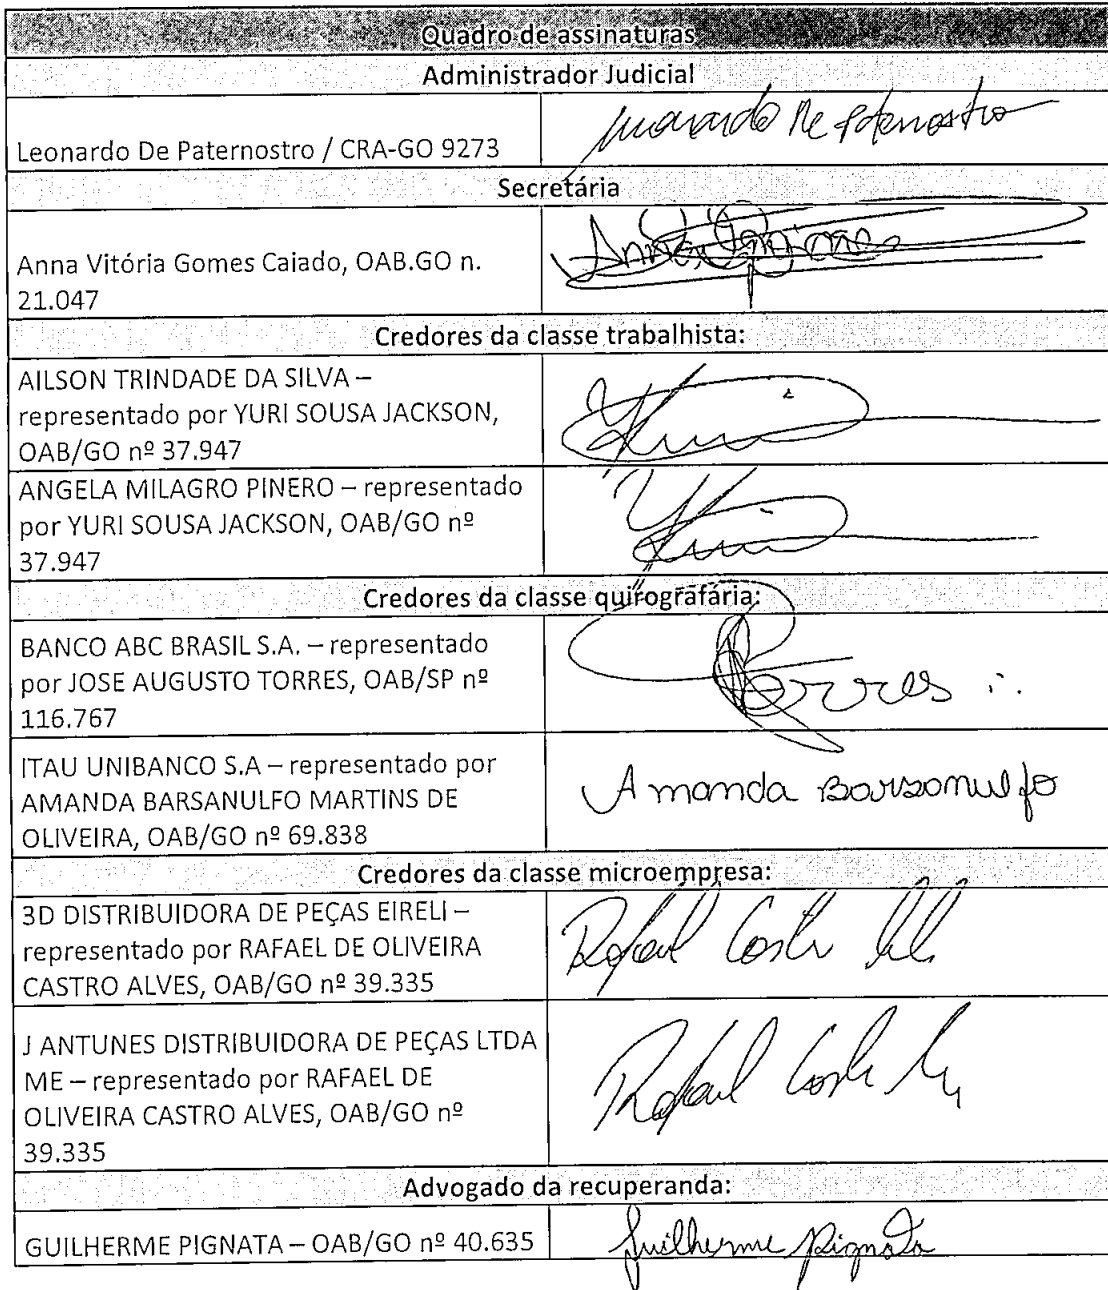 Quadro de assinaturas
Administrador Judicial
Leonardo De Paternostro / CRA-GO 9273
Leonardo De Paternostro
Secretária
Anna Vitória Gomes Caiado, OAB.GO n.
21.047
Credores da classe trabalhista:
AILSON TRINDADE DA SILVA –
representado por YURI SOUSA JACKSON,
OAB/GO nº 37.947
Yuri
ANGELA MILAGRO PINERO – representado
por YURI SOUSA JACKSON, OAB/GO nº
37.947
Yuri
Credores da classe quirografária:
BANCO ABC BRASIL S.A. – representado
por JOSE AUGUSTO TORRES, OAB/SP nº
116.767
Torres
ITAU UNIBANCO S.A – representado por
AMANDA BARSANULFO MARTINS DE
OLIVEIRA, OAB/GO nº 69.838
Amanda Barsanulfo
Credores da classe microempresa:
3D DISTRIBUIDORA DE PEÇAS EIRELI –
representado por RAFAEL DE OLIVEIRA
CASTRO ALVES, OAB/GO nº 39.335
Rafael Castro
J ANTUNES DISTRIBUIDORA DE PEÇAS LTDA
ME – representado por RAFAEL DE
OLIVEIRA CASTRO ALVES, OAB/GO nº
39.335
Rafael Castro
Advogado da recuperanda:
GUILHERME PIGNATA – OAB/GO nº 40.635
Guilherme Pignata